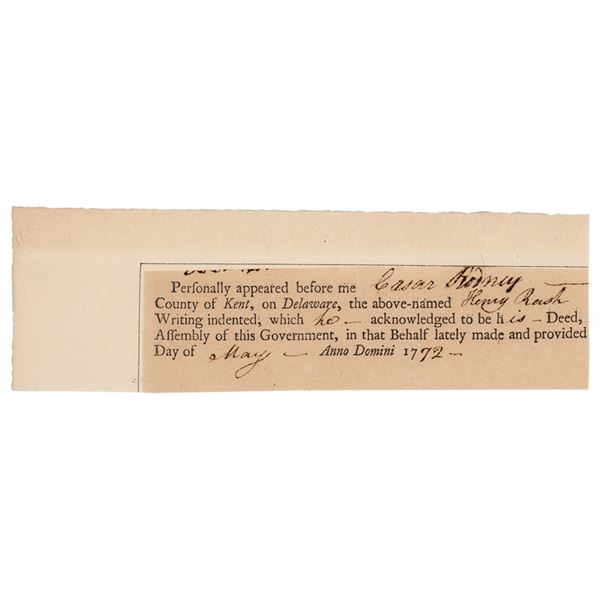 Personally appeared before me Caesar Rodney
County of Kent, on Delaware, the above-named Henry Rash
Writing indented, which he acknowledged to be his Deed,
Assembly of this Government, in that Behalf lately made and provided
Day of May Anno Domini 1772